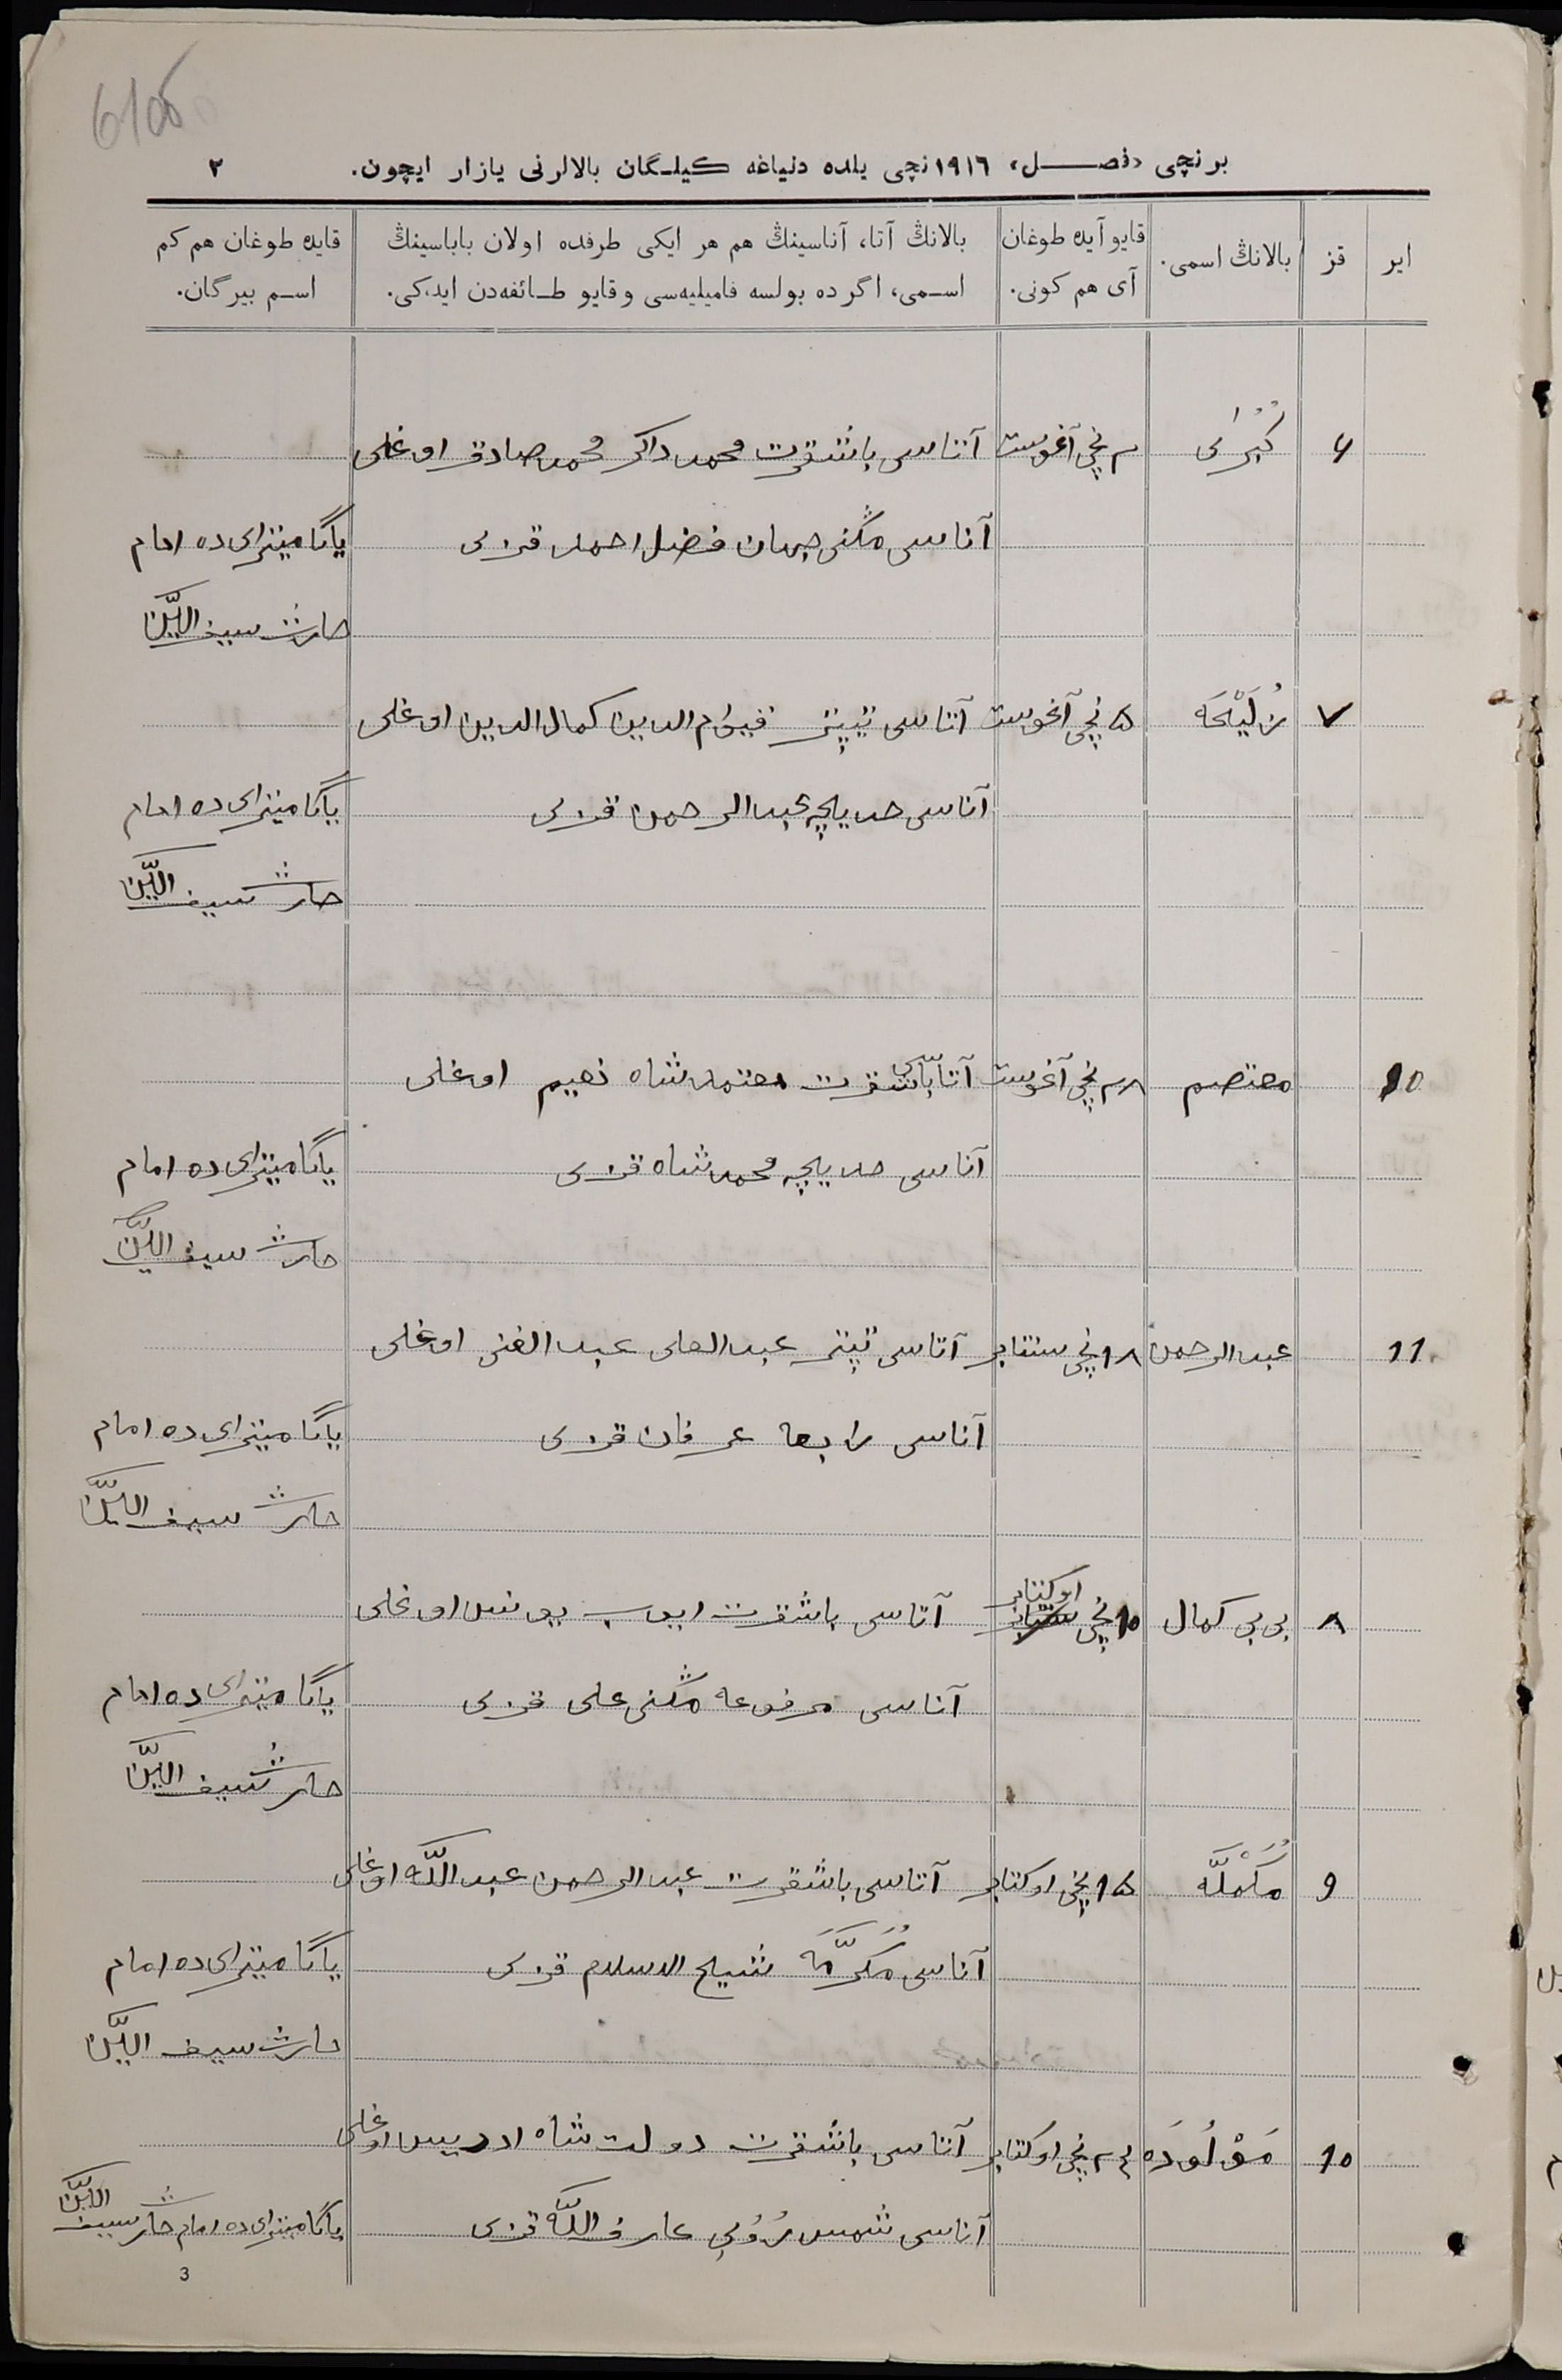 6100
برنچی «فصـــل» ۱۹۱٦نچی یلده دنیاغه کیلـگان بالالرنی یازار ایچون. ۲
ایر
قز
بالانڭ اسمی.
قایو آیده طوغان
آی هم کونی.
بالانڭ آتا، آناسینڭ هم هر ایکی طرفده اولان باباسینڭ
اسـمی، اگر ده بولسه فامیلیه‌سی وقایو طـائفه‌دن ایدکی.
قایده طوغان هم کم
اسـم بیرگان.
۶ کُبْرٰی ۲ نچی آغوست آتاسی باشقرت محمد ذاکر محمد صادق اوغلی
آناسی مڭنی جهان فضل احمد قزی یاڭا میترای ده امام
حارث سیف الدین
۷ زُلَیْحَه ۵ نچی آغوست آتاسی تیپتر قیوام الدین کمال الدین اوغلی
آناسی حدیچه عبد الرحمن قزی یاڭا میترای ده امام
حارث سیف الدین
10 معتصم ۲۸ نچی آغوست آتاسی باشقرت معتمد شاه نعیم اوغلی
آناسی حدیچه محمد شاه قزی یاڭا میترای ده امام
حارث سیف الدین
11 عبد الرحمن ۱۸ نچی سنتابر آتاسی تیپتر عبد العلی عبد الغنی اوغلی
آناسی رابعا عرفان قزی یاڭا میترای ده امام
حارث سیف الدین
۸ بی بی کمال 10 نچی اوکتابر آتاسی باشقرت ایوب یونس اوغلی
آناسی مرفوعه مڭنی علی قزی یاڭا میترای ده امام
حارث سیف الدین
9 مُکَمْلَّه ۱۵ نچی اوکتابر آتاسی باشقرت عبد الرحمن عبد اللّه اوغلی
آناسی مُکَرَّمَه شیخ الاسلام قزی یاڭا میترای ده امام
حارث سیف الدین
10 مَوْلُودَه ۲٤ نچی اوکتابر آتاسی باشقرت دولت شاه ادریس اوغلی
آناسی شمس عارف اللّه قزی یاڭا میترای ده امام حارث سیف الدین
3